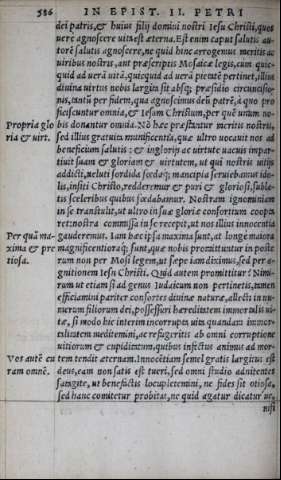 586 IN EPIST. II. PETRI
dei patris, & huius filij domini nostri Iesu Christi, quos
uerè agnoscere uita est æterna. Est enim caput salutis au-
torē salutis agnoscere, ne quid hinc arrogemus meritis ac
uiribus nostris, aut præscriptis Mosaicæ legis, cum quic-
quid ad ueram uitā, quicquid ad uerā pietatē pertinet, illius
diuina uirtus nobis largita sit absq; præsidio circuncisio-
nis, tantū per fidem, qua agnoscimus deū patrē, à quo pro
ficiscuntur omnia, & Iesum Christum, per quē unum no-
Propria glo bis donantur omnia. Nō hæc præstantur meritis nostris,
ria & uirt. sed illius gratuita munificentia, quæ ultro uocauit nos ad
beneficium salutis: & inglorijs ac uirtute uacuis impar-
tiuit suam & gloriam & uirtutem, ut qui nostris uitijs
addicti, ueluti sordida fœdaq; mancipia seruiebamus ido-
lis, insiti Christo, redderemur & puri & gloriosi, subla-
tis sceleribus quibus fœdabamur. Nostram ignominiam
in se transtulit, ut ultro in suæ gloriæ consortium coopta
ret: nostra commissa in se recepit, ut nos illius innocentia
Per quā ma gauderemus. Iam hæc ipsa maxima sunt, at longè maiora
xima & pre magnificentioraq; sunt, quæ nobis promittuntur in poste
tiosa. rum non per Mosi legem, ut sæpe iam diximus, sed per a-
gnitionem Iesu Christi. Quid autem promittitur? Nimi-
rum ut etiam si ad genus Iudaicum non pertinetis, tamen
efficiamini pariter consortes diuinæ naturæ, allecti in nu-
merum filiorum dei, possessuri hæreditatem immortalis ui-
tæ, si modo hic interim incorrupta uita quandam immor-
talitatem meditemini, ac refugeritis ab omni corruptione
uitiorum & cupiditatum, quibus infectus animus ad mor-
Vos autē cu tem tendit æternam. Innocētiam semel gratis largitus est
ram omnē. deus, eam non satis est tueri, sed omni studio adnitentes
satagite, ut benefictis locupletemini, ne fides sit otiosa,
sed hanc comitetur probitas, ne quid agatur dicatur ue,
nisi